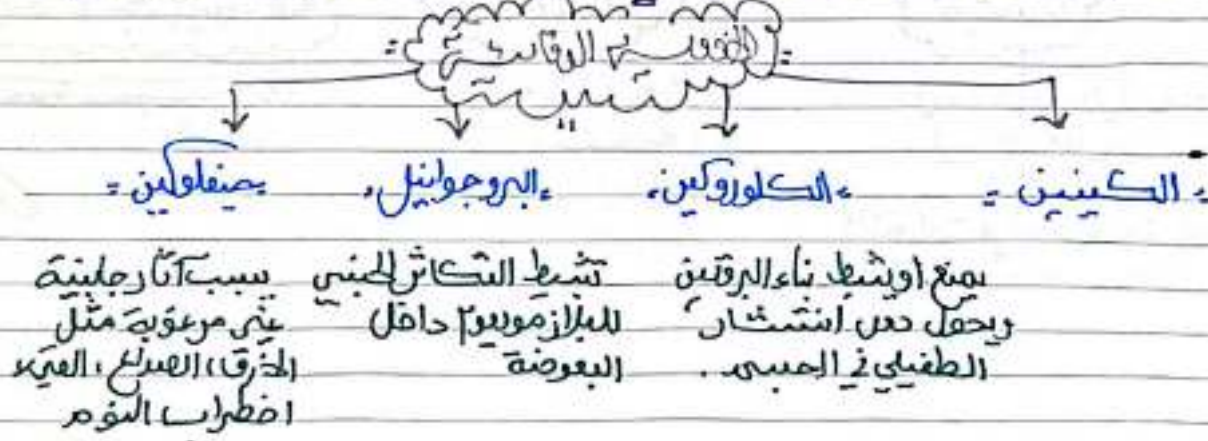 الوقائية
= الكينين =
= الكلوروكين =
= البروجوانيل =
= ميفلوكين =
يمنع او يثبط بناء البروتين
ويحول دون انتشار
الطفيلي في الجسم .
تثبط التكاثر الجنسي
للبلازموديوم داخل
البعوضة
يسبب آثار جانبية
غير مرغوبة مثل
الأرق، الصداع، القيء
اضطراب النوم